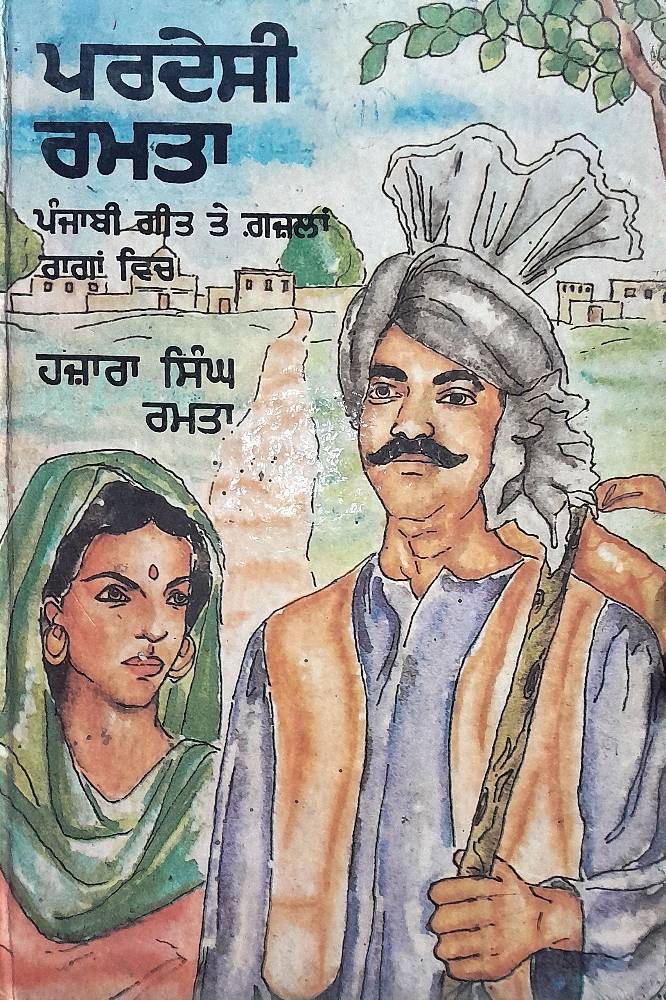 ਪਰਦੇਸੀ
ਰਮਤਾ
ਪੰਜਾਬੀ ਗੀਤ ਤੇ ਗ਼ਜ਼ਲਾਂ
ਰਾਗਾਂ ਵਿਚ
ਹਜ਼ਾਰਾ ਸਿੰਘ
ਰਮਤਾ